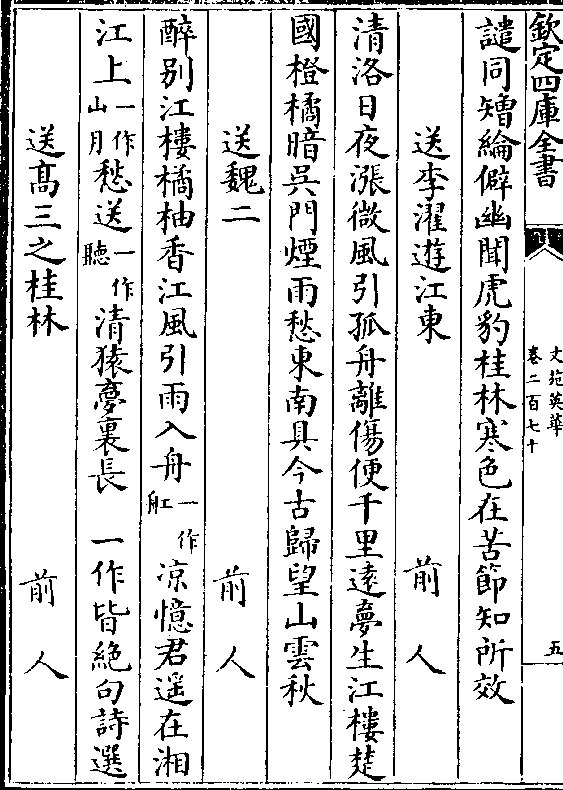 欽定四庫全書
文苑英華
卷二百七十
五
譴同矰綸僻幽聞虎豹桂林寒色在苦節知所效
送李濯遊江東 前人
清洛日夜漲微風引孤舟離傷便千里遠夢生江樓楚
國橙橘暗吳門煙雨愁東南具今古歸望山雲秋
送魏二 前人
醉别江樓橘柚香江風引雨入舟一作舡凉憶君遥在湘
江上一作山月愁送一作聽清猿夢裏長 一作皆絶句詩選
送髙三之桂林 前人